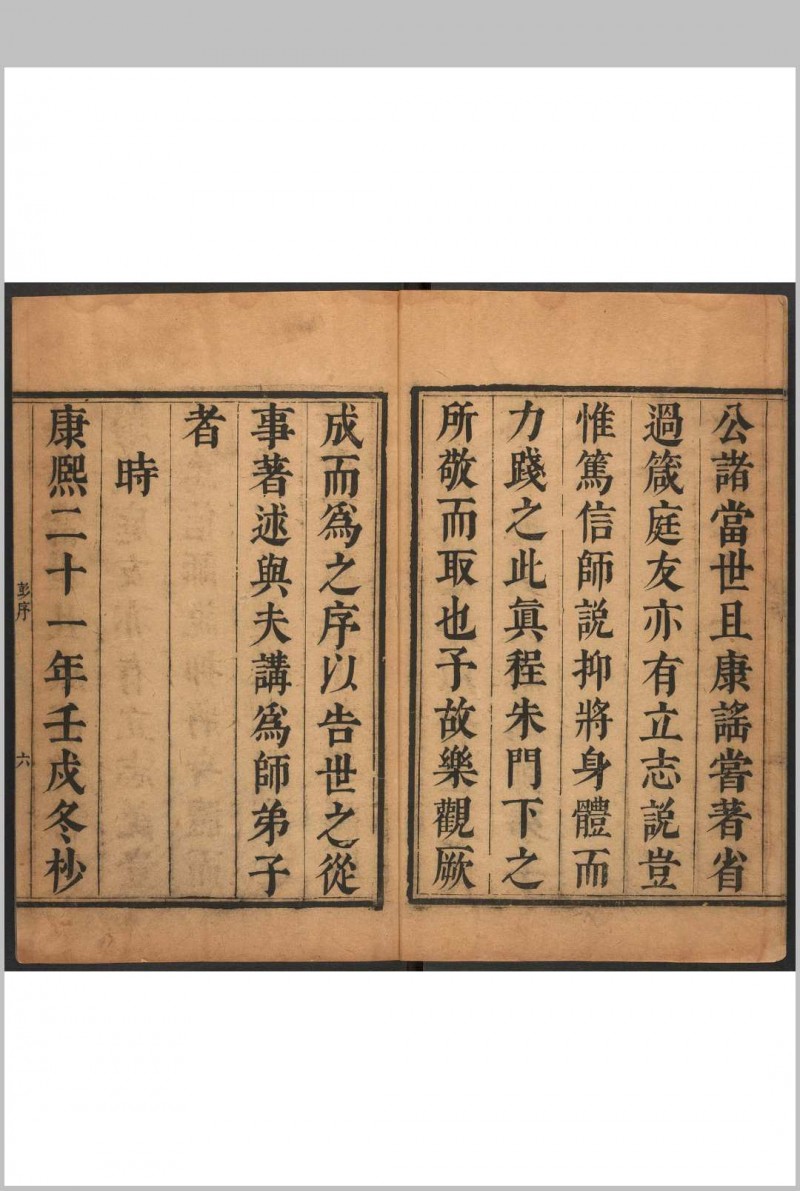 公諸當世且康謠嘗著省
過箴庭友亦有立志説豈
惟篤信師説抑將身體而
力踐之此眞程朱門下之
所敬而取也予故樂觀厥
成而爲之序以告世之從
事著述與夫講爲師弟子
者
時
康熙二十一年壬戌冬杪
彭序
六